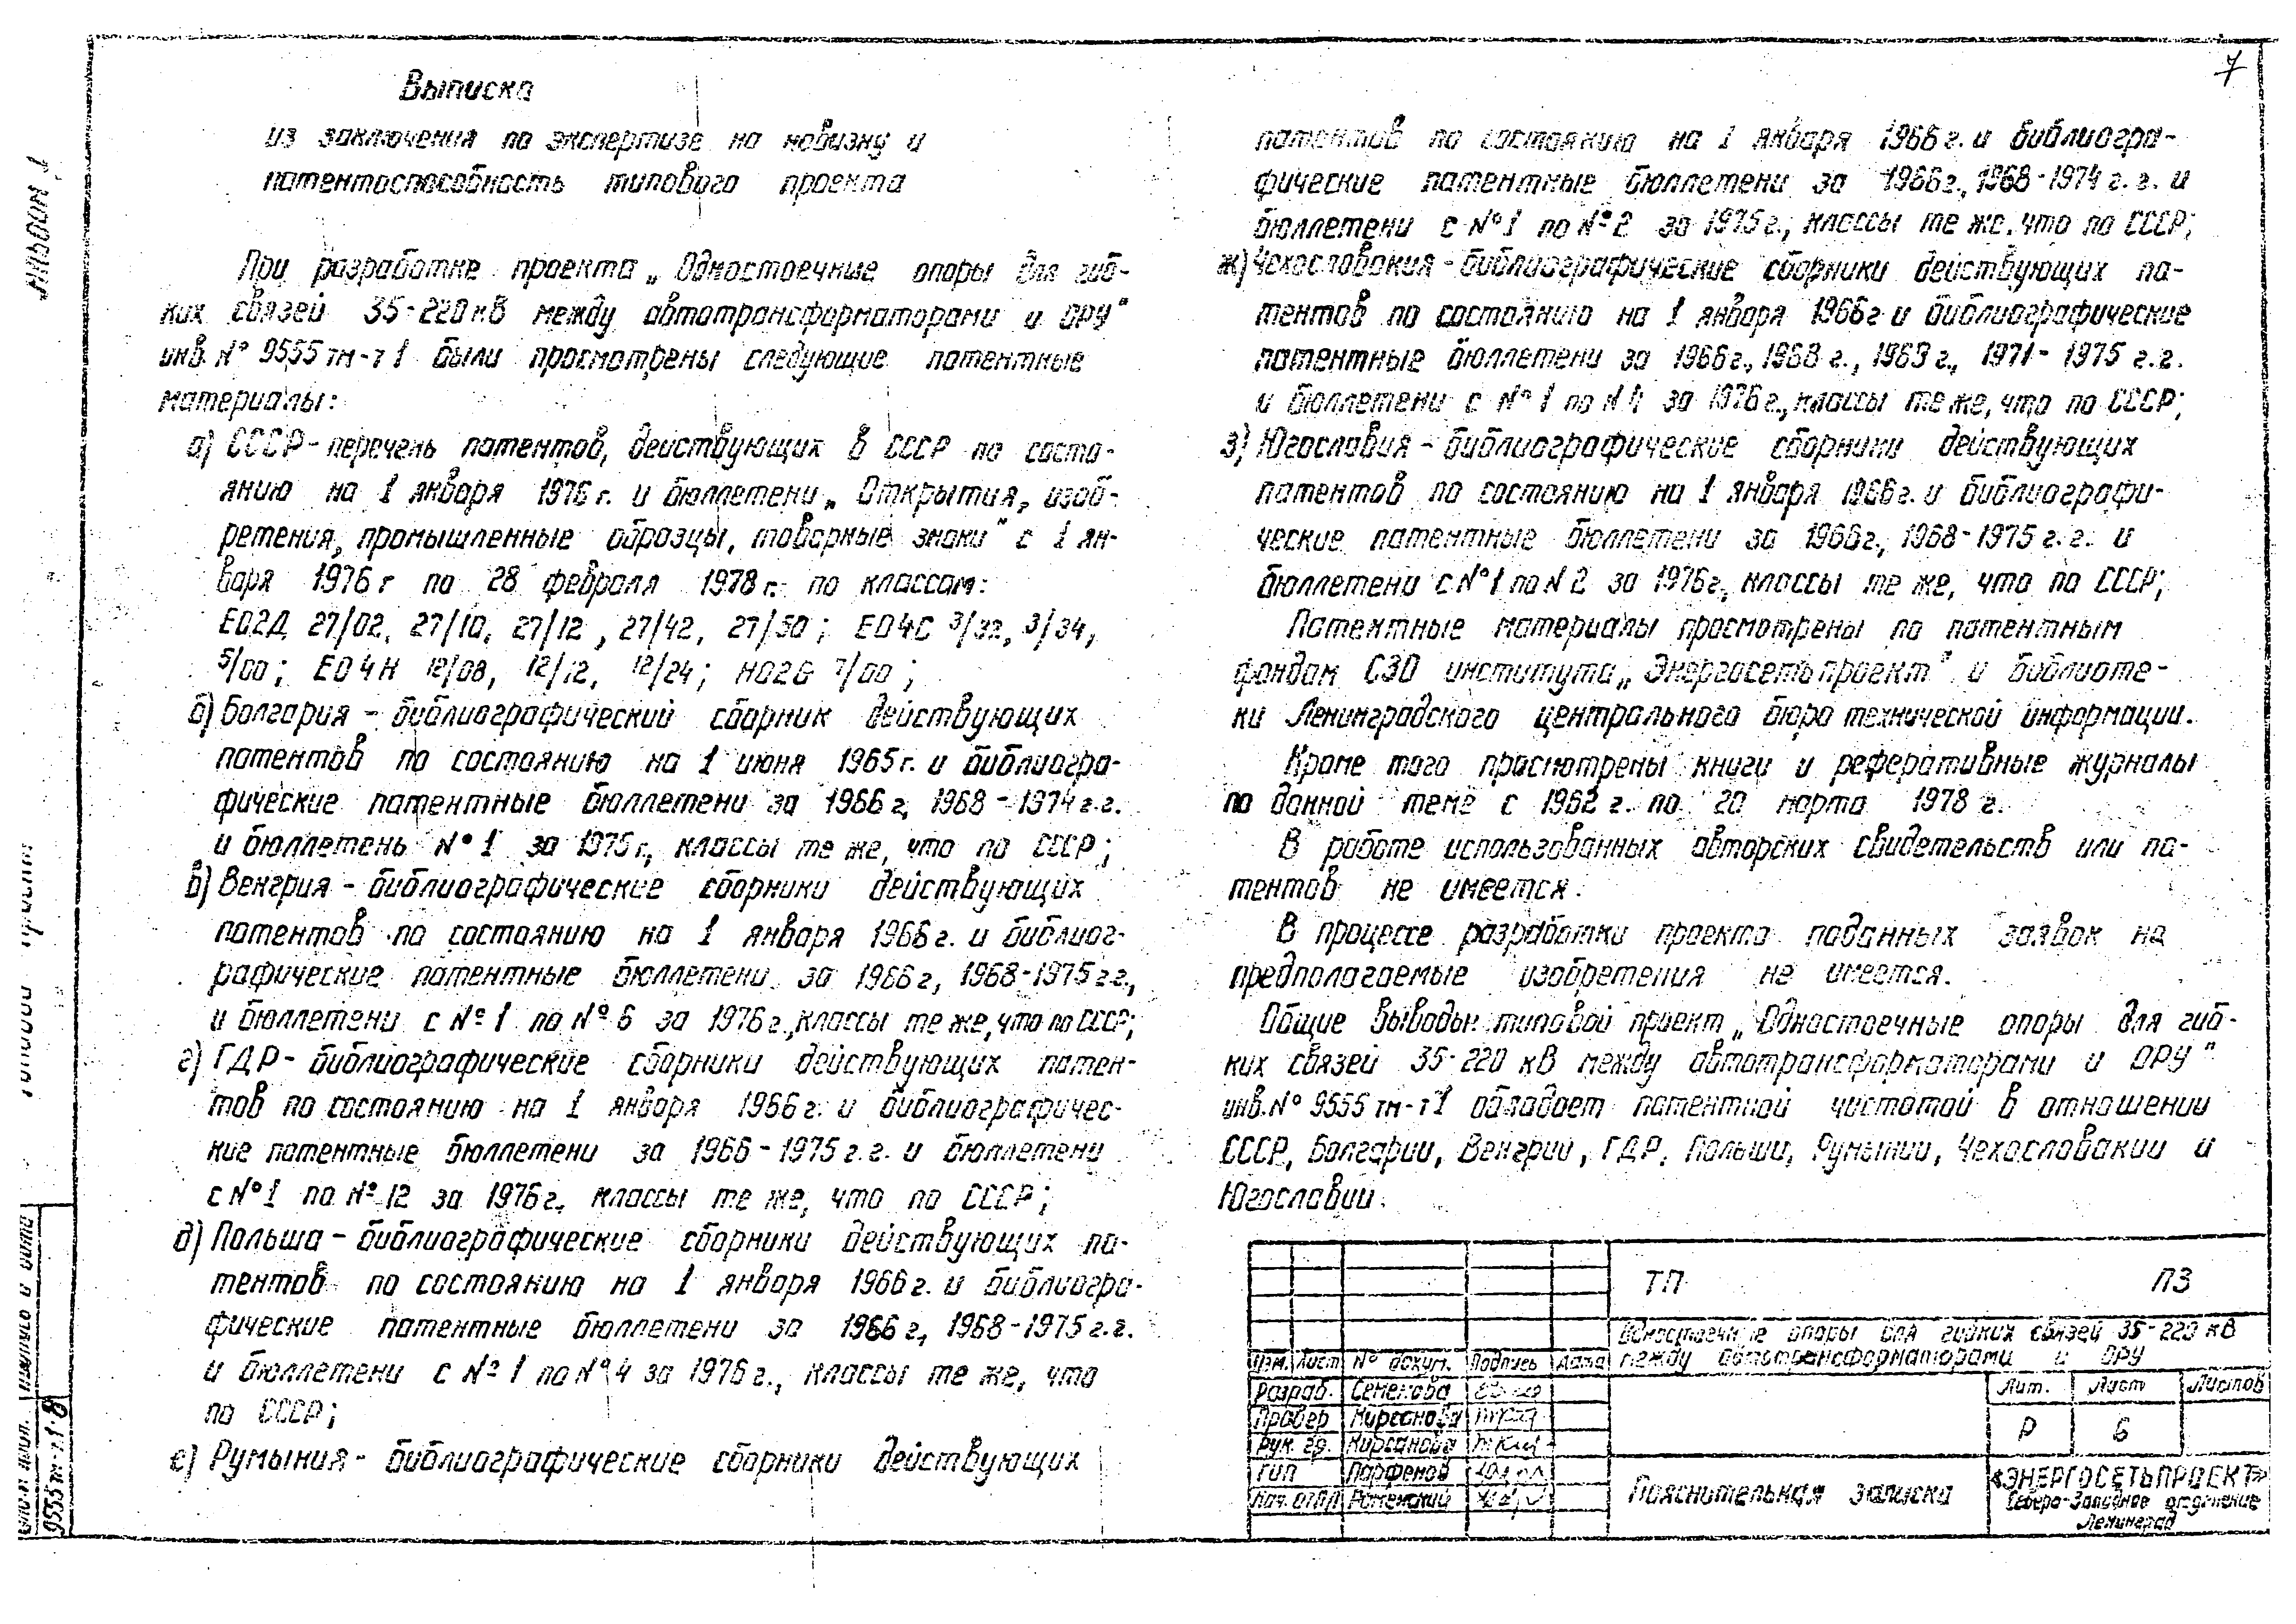 7
Выписка
из заключения по экспертизе на новизну и
патентоспособность типового проекта
При разработке проекта „Одностоечные опоры для гиб-
ких связей 35-220 кВ между автотрансформаторами и ОРУ"
инв. № 9555 тм-т1 были просмотрены следующие патентные
материалы:
а) СССР - перечень патентов, действующих в СССР по состо-
янию на 1 января 1976 г. и бюллетени „Открытия, изоб-
ретения, промышленные образцы, товарные знаки" с 1 ян-
варя 1976 г по 28 февраля 1978 г. по классам:
Е02Д 27/02, 27/10, 27/12, 27/42, 27/50; Е04С 3/32, 3/34,
5/00; Е04Н 12/08, 12/12, 12/24; Н02G 7/00;
б) Болгария - библиографический сборник действующих
патентов по состоянию на 1 июня 1965 г. и библиогра-
фические патентные бюллетени за 1966 г, 1968-1974 г.г.
и бюллетень №1 за 1975 г., классы те же, что по СССР;
в) Венгрия - библиографические сборники действующих
патентов по состоянию на 1 января 1966 г. и библиог-
рафические патентные бюллетени за 1966 г, 1968-1975 г.г.,
и бюллетени с №1 по №6 за 1976 г., классы те же, что по СССР;
г) ГДР - библиографические сборники действующих патен-
тов по состоянию на 1 января 1966 г. и библиографичес-
кие патентные бюллетени за 1966-1975 г.г. и бюллетени
с №1 по №12 за 1976 г., классы те же, что по СССР;
д) Польша - библиографические сборники действующих па-
тентов по состоянию на 1 января 1966 г. и библиогра-
фические патентные бюллетени за 1966 г., 1968-1975 г.г.
и бюллетени с №1 по №4 за 1976 г., классы те же, что
по СССР;
е) Румыния - библиографические сборники действующих
патентов по состоянию на 1 января 1966 г. и библиогра-
фические патентные бюллетени за 1966 г., 1968-1974 г.г. и
бюллетени с №1 по №2 за 1975 г., классы те же, что по СССР;
ж) Чехословакия - библиографические сборники действующих па-
тентов по состоянию на 1 января 1966 г и библиографические
патентные бюллетени за 1966 г., 1968 г., 1969 г., 1971-1975 г.г.
и бюллетени с №1 по N4 за 1976 г., классы те же, что по СССР;
з) Югославия - библиографические сборники действующих
патентов по состоянию на 1 января 1966 г. и библиографи-
ческие патентные бюллетени за 1966 г., 1968-1975 г.г. и
бюллетени с №1 по N2 за 1976 г., классы те же, что по СССР;
Патентные материалы просмотрены по патентным
фондам СЗО института „Энергосетьпроект" и библиоте-
ки Ленинградского центрального бюро технической информации.
Кроме того просмотрены книги и реферативные журналы
по данной теме с 1962 г. по 20 марта 1978 г.
В работе использованных авторских свидетельств или па-
тентов не имеется.
В процессе разработки проекта поданных заявок на
предполагаемые изобретения не имеется.
Общие выводы: типовой проект „Одностоечные опоры для гиб-
ких связей 35-220 кВ между автотрансформаторами и ОРУ"
инв. № 9555 тм-т1 обладает патентной чистотой в отношении
СССР, Болгарии, Венгрии, ГДР, Польши, Румынии, Чехословакии и
Югославии.
ТП ПЗ
Одностоечные опоры для гибких связей 35-220 кВ
между автотрансформаторами и ОРУ
Изм. Лист № докум. Подпись Дата
Разраб. Семенова
Провер Кирсанова
Рук. гр. Кирсанова
ГИП Парфенов
Нач. отд. Роменский
Лит. Лист Листов
Р 6
Пояснительная записка
«ЭНЕРГОСЕТЬПРОЕКТ»
Северо-Западное отделение
Ленинград
Альбом 1
Подпись и дата
9555тм-т1-8